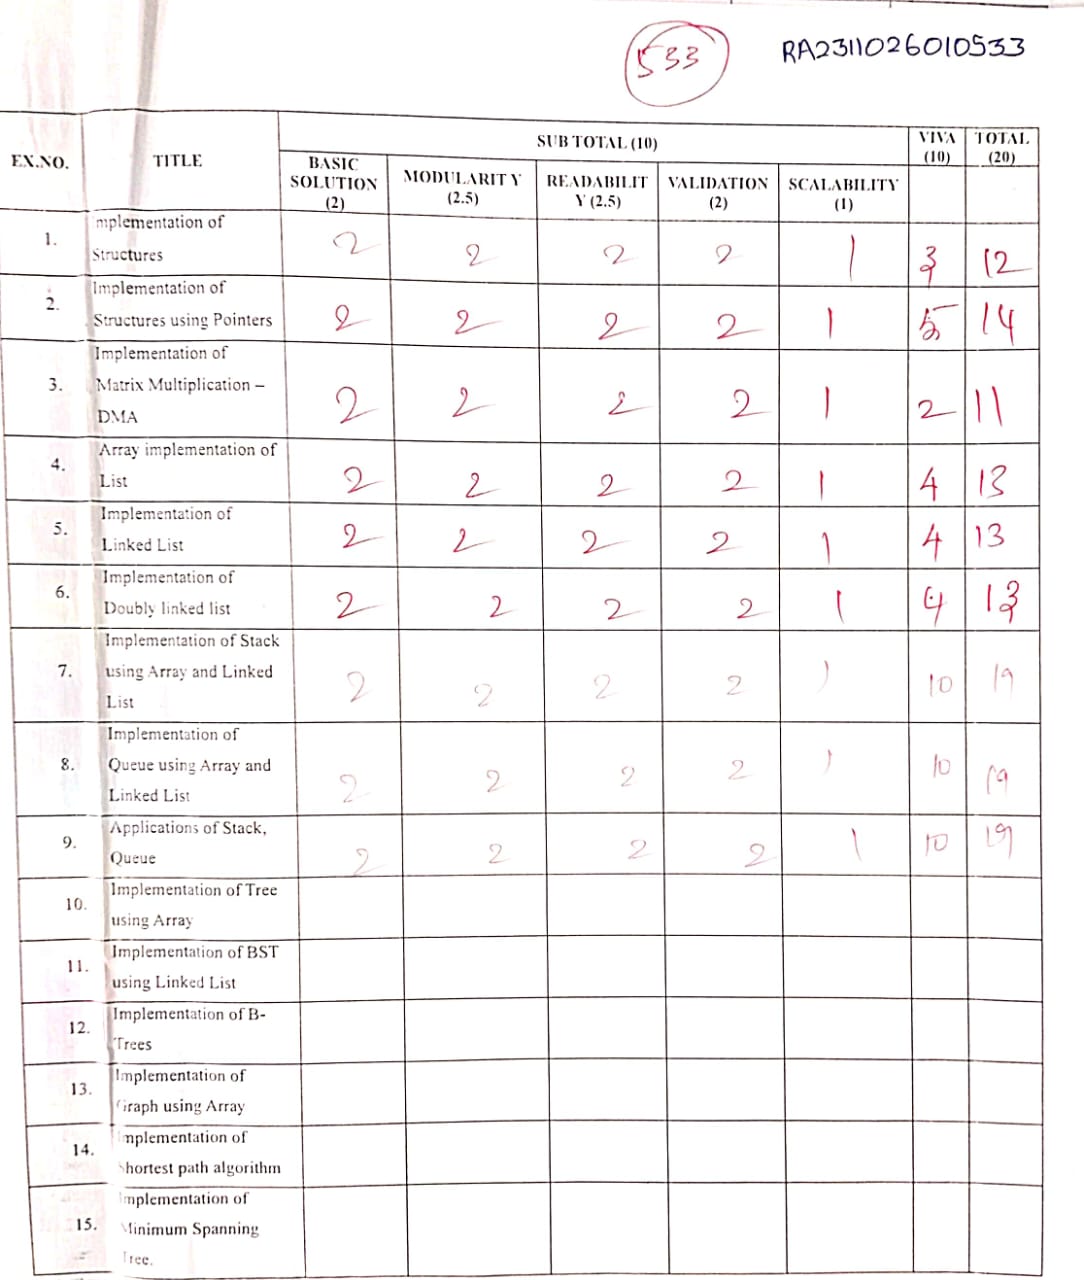 533 RA2311026010533
EX.NO. TITLE SUB TOTAL (10) VIVA (10) TOTAL (20)
BASIC SOLUTION (2) MODULARITY (2.5) READABILITY (2.5) VALIDATION (2) SCALABILITY (1)
1. mplementation of Structures 2 2 2 2 1 3 12
2. Implementation of Structures using Pointers 2 2 2 2 1 5 14
3. Implementation of Matrix Multiplication – DMA 2 2 2 2 1 2 11
4. Array implementation of List 2 2 2 2 1 4 13
5. Implementation of Linked List 2 2 2 2 1 4 13
6. Implementation of Doubly linked list 2 2 2 2 1 4 13
7. Implementation of Stack using Array and Linked List 2 2 2 2 1 10 19
8. Implementation of Queue using Array and Linked List 2 2 2 2 1 10 19
9. Applications of Stack, Queue 2 2 2 2 1 10 19
10. Implementation of Tree using Array
11. Implementation of BST using Linked List
12. Implementation of B-Trees
13. Implementation of Graph using Array
14. mplementation of hortest path algorithm
15. Implementation of Minimum Spanning Tree.